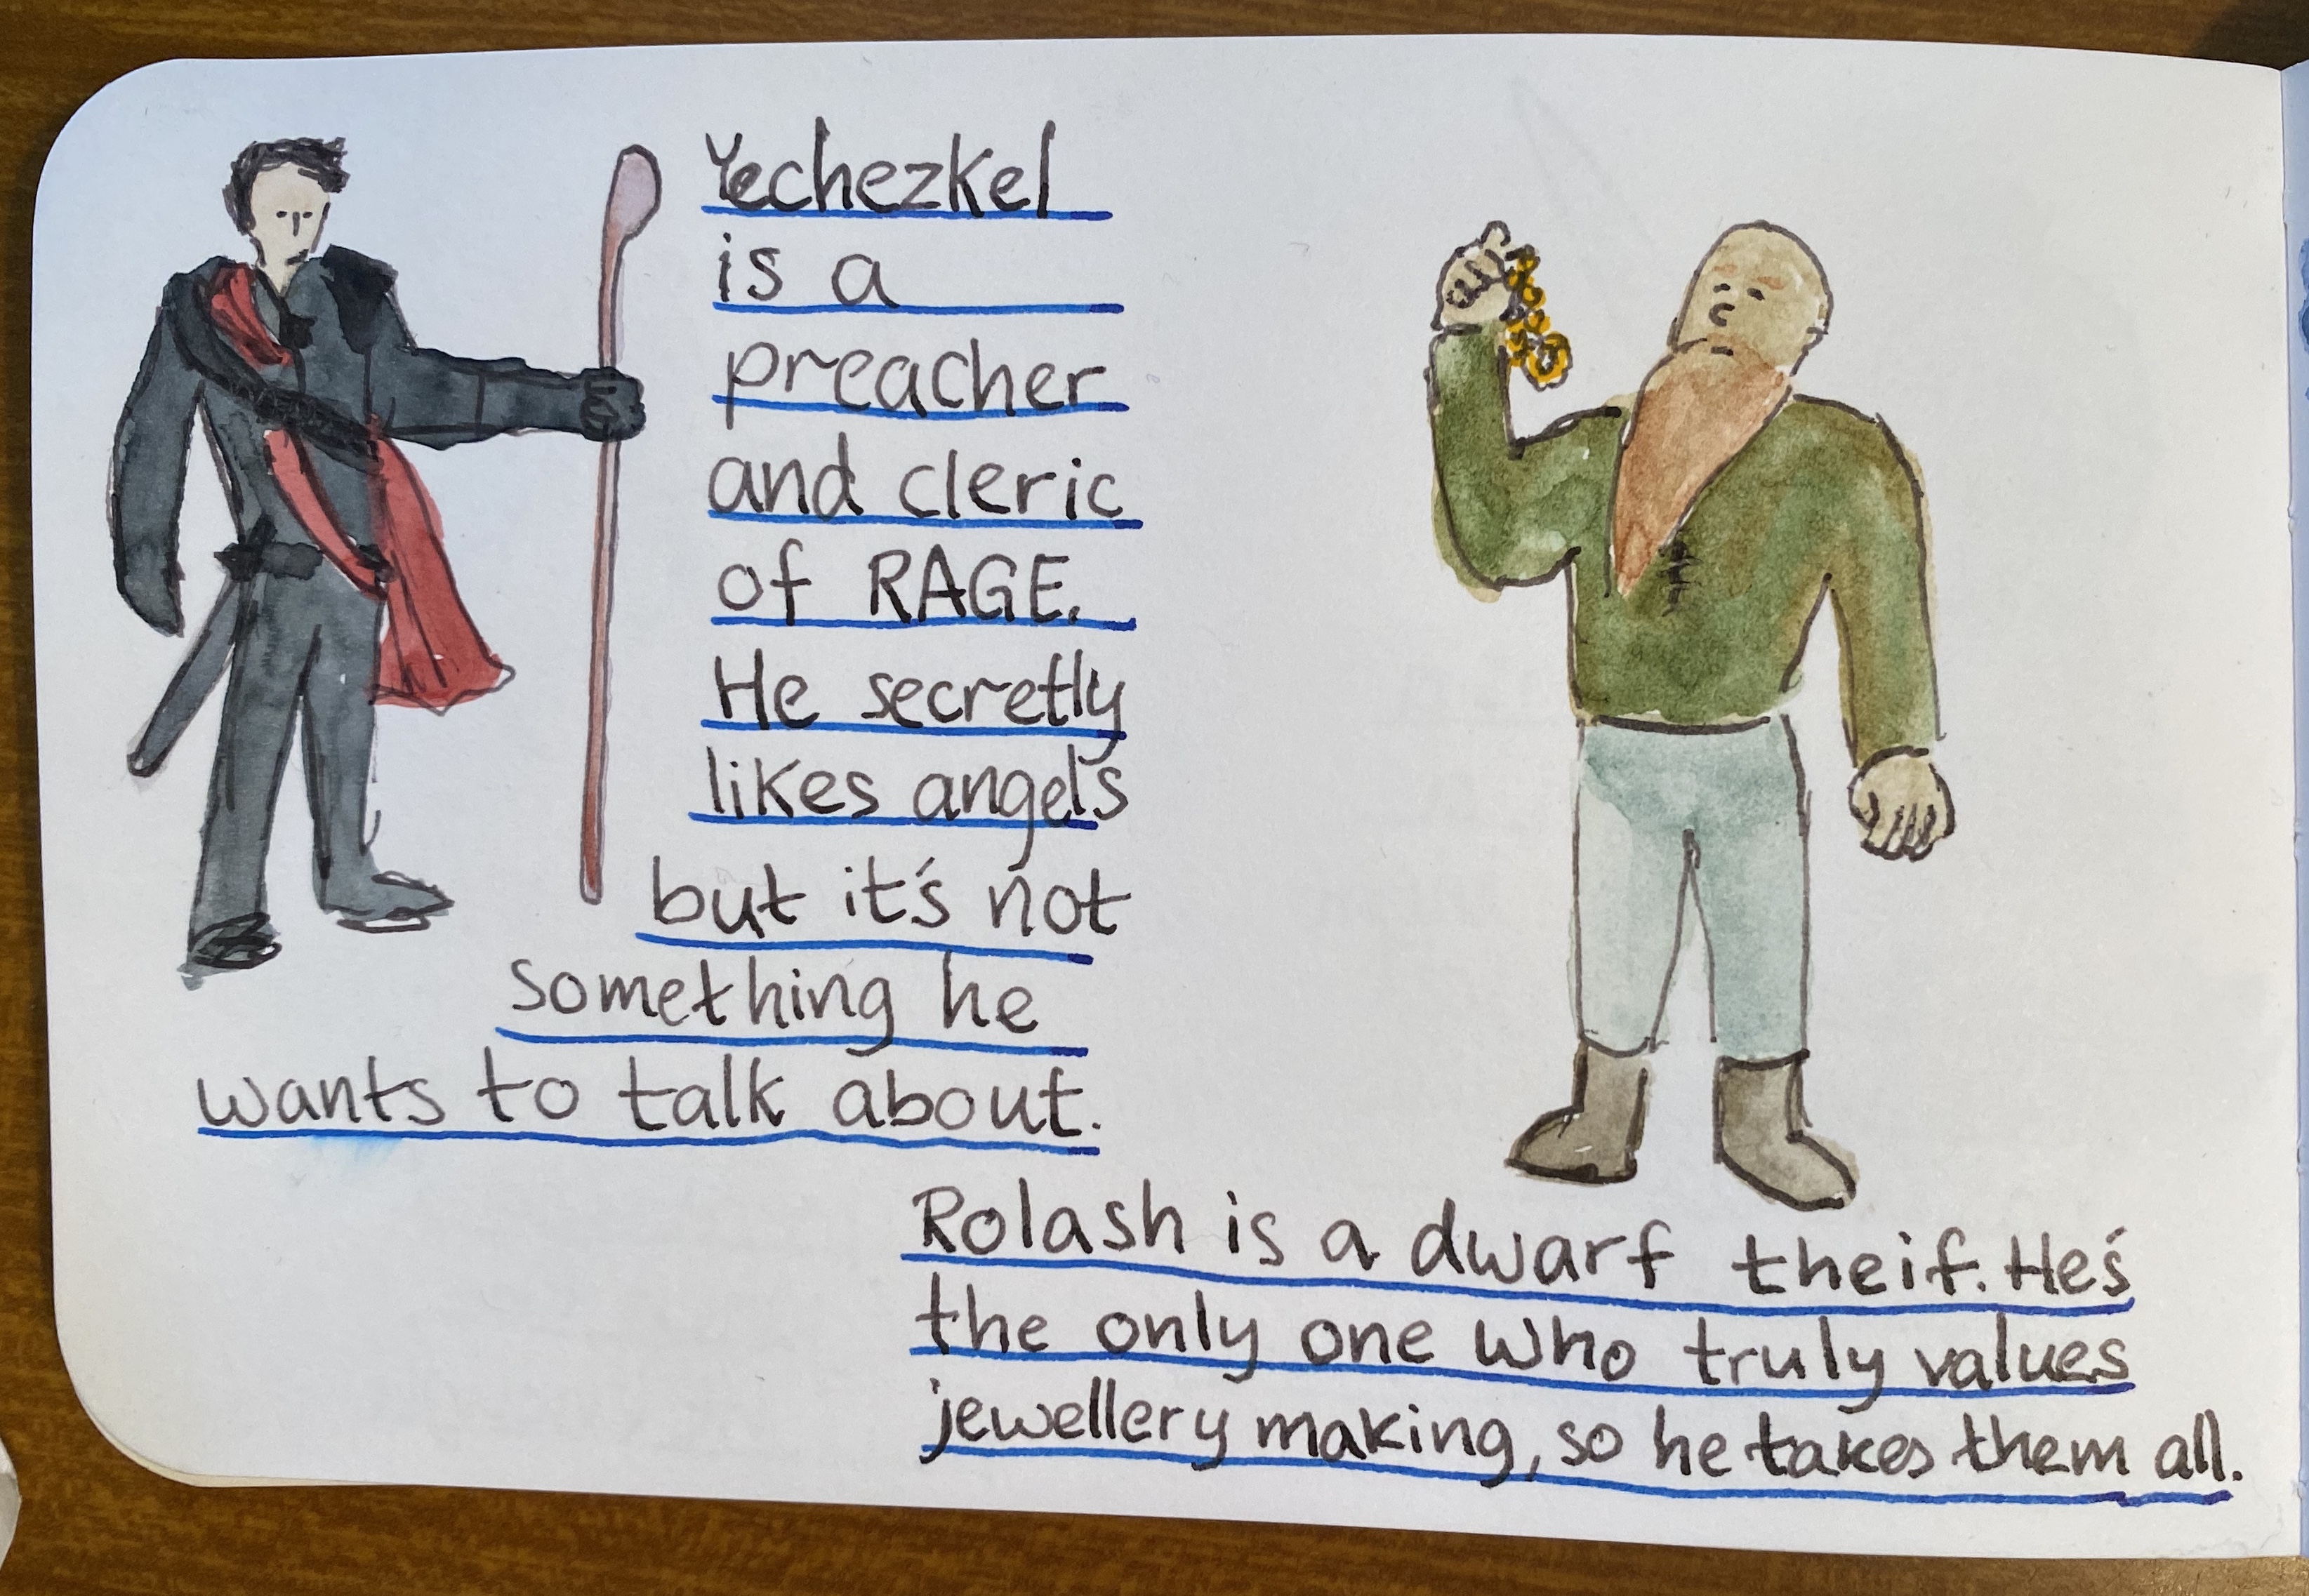 Yechezkel
is a
preacher
and cleric
of RAGE.
He secretly
likes angels
but it's not
something he
wants to talk about.
Rolash is a dwarf theif. He's
the only one who truly values
jewellery making, so he takes them all.